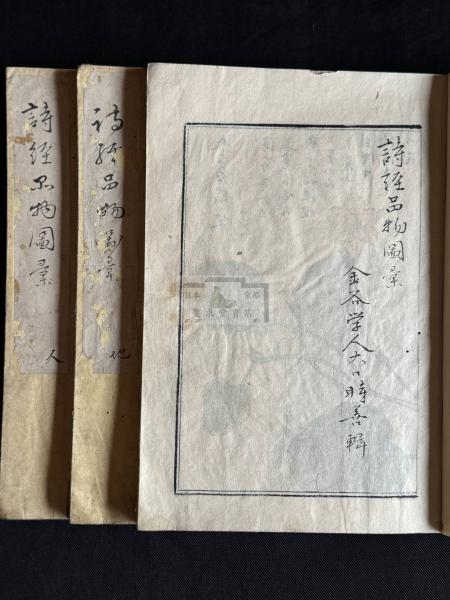 詩經品物圖彙
金谷学人大口時善輯
詩經品物圖彙
地
詩經品物圖彙
人
日本
京都
書店